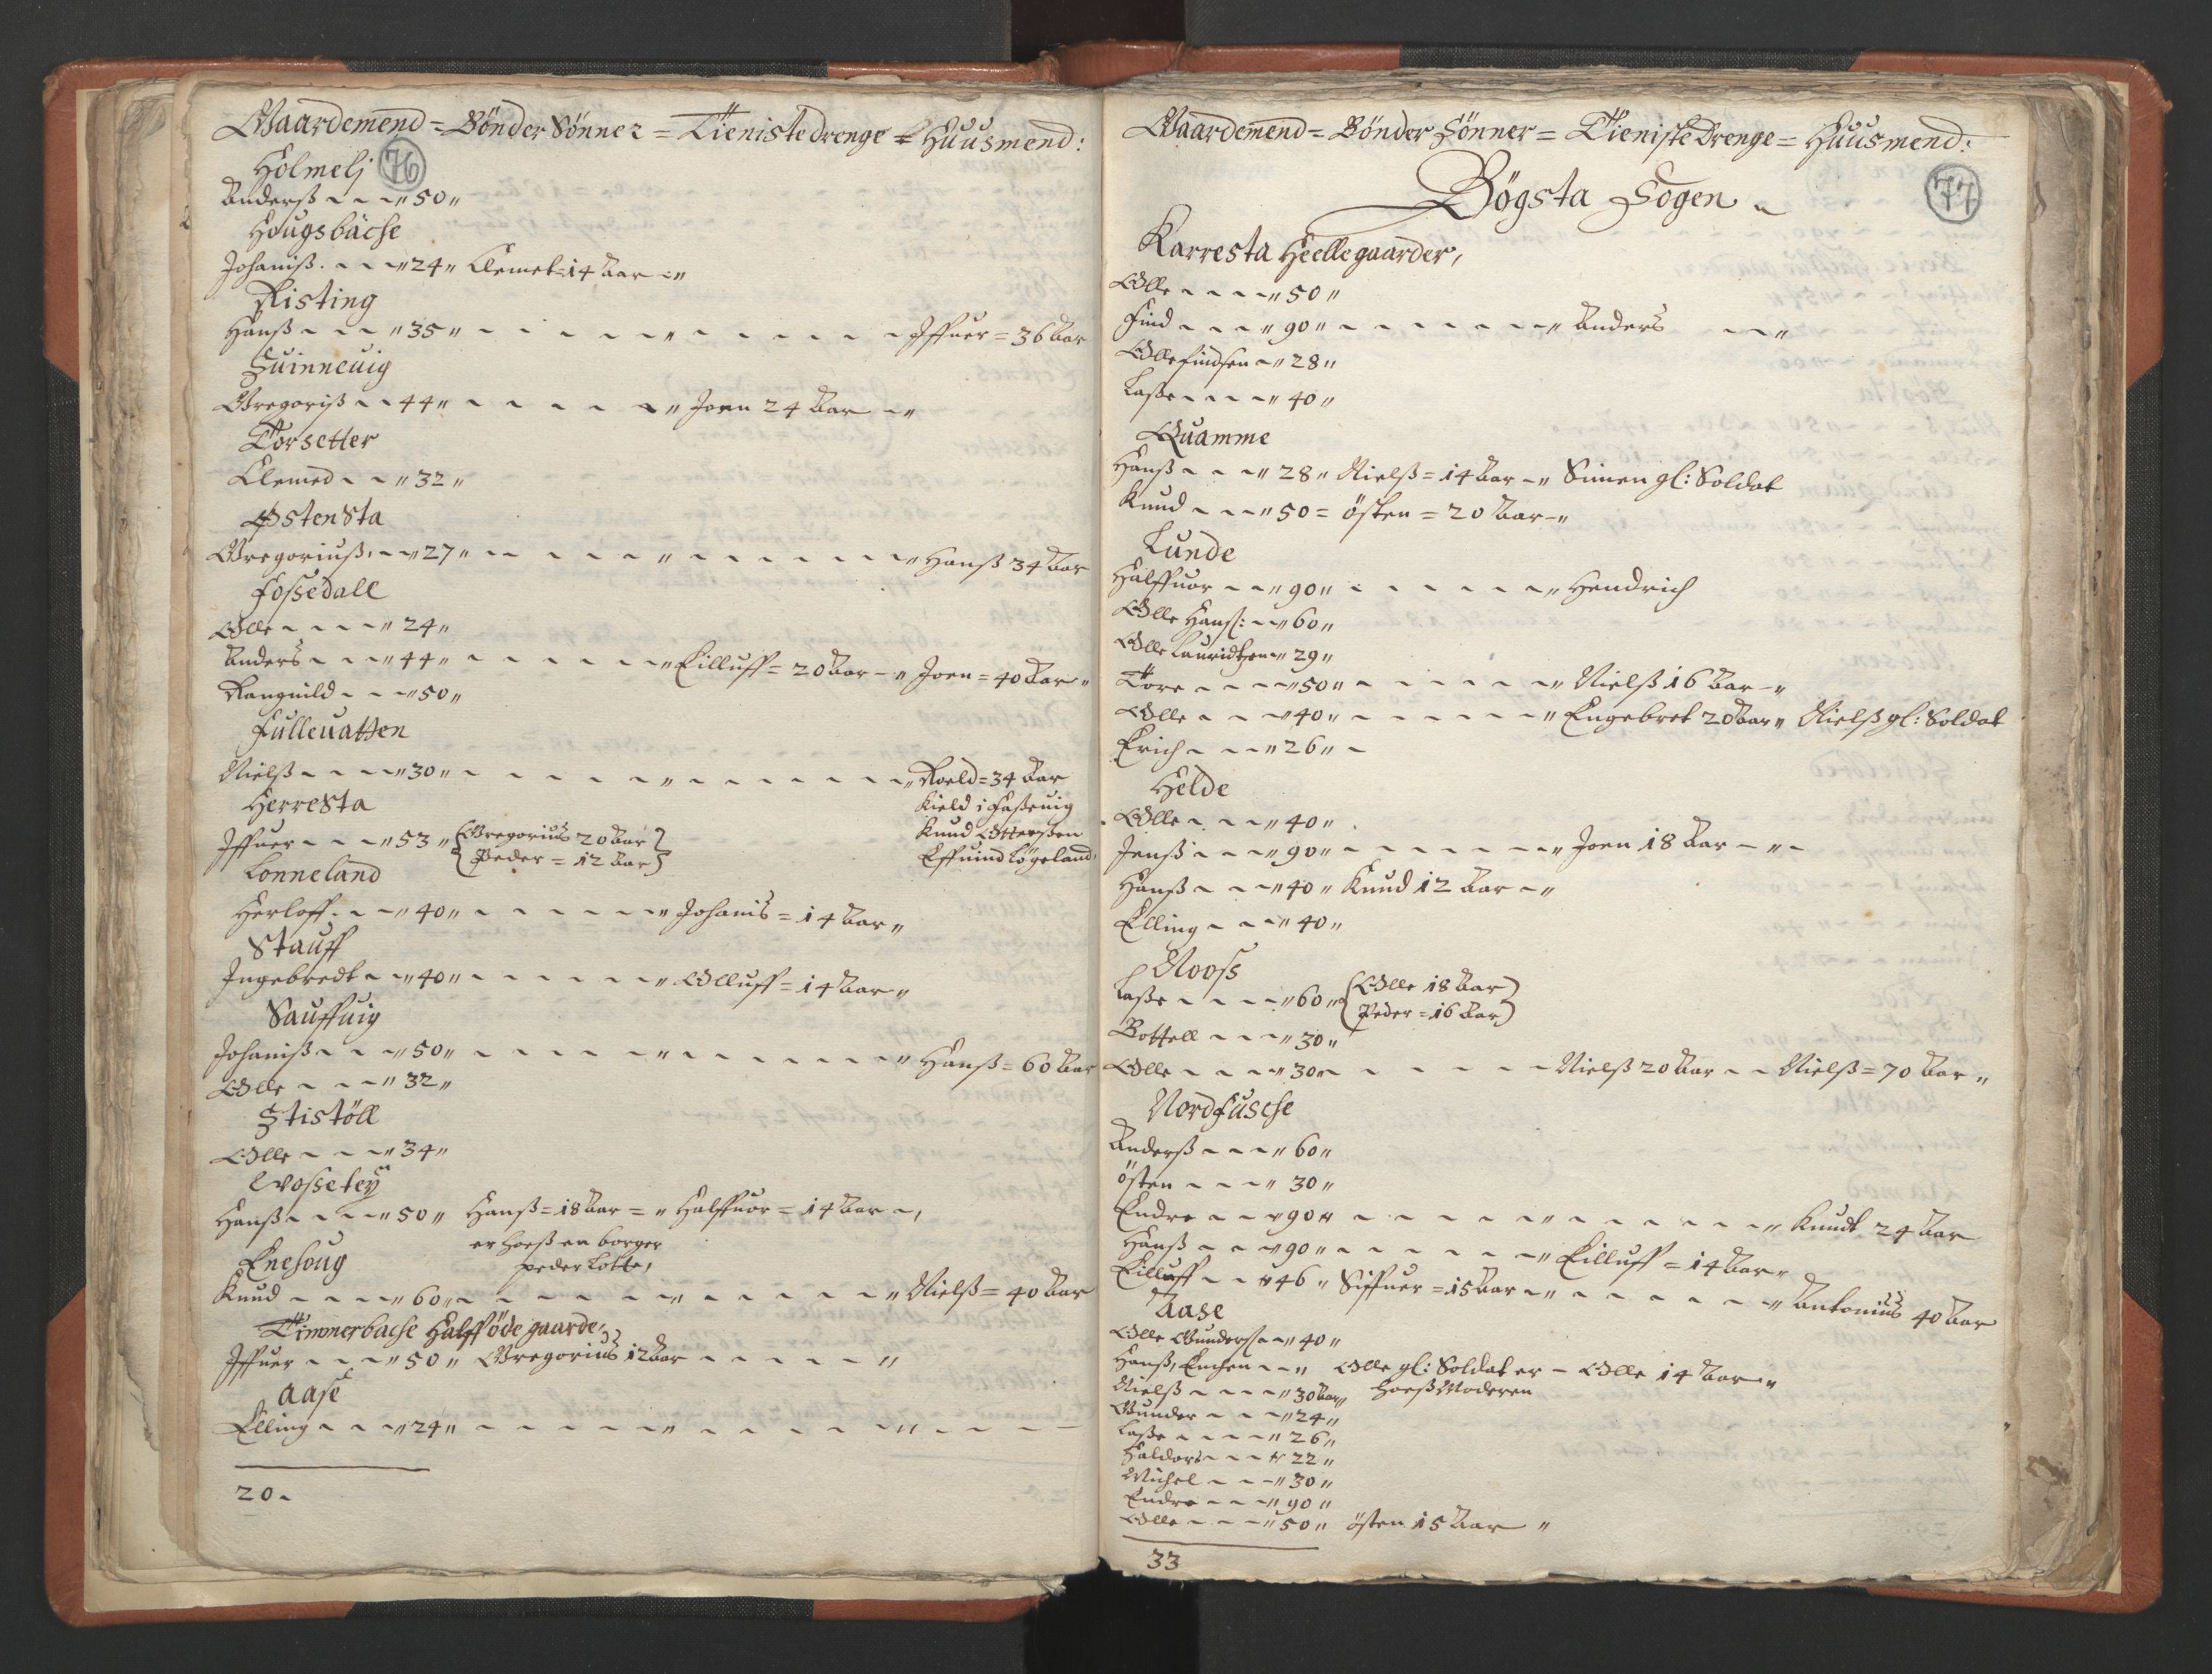 Gaardemend = Bönder Sönner = Tieniste drenge = Huusmend:
76
Holmelj
Anderß - - - " 50 "
Hougsbäche
Johaniß. - - - " 24 " Clemet = 14 Aar - "
Risting
Hanß - - - " 35 " - - - - - " - - - - - Iffuer = 36 Aar
Suinneuig
Gregoriß - - 44 " - - - - - " Joen 24 Aar - "
Torsetter
Clemed - - " 32 "
Østensta
Gregoriuß. - " 27 " - - - - - " - - - - - " Hanß 34 Aar
Foßedall
Olle - - - - " 24 "
Anders - - - " 44 " - - - - - " Eilluff = 20 Aar - " Joen = 40 Aar "
Ranguild - - - " 50 "
Fulleuatten
Nielß - - - - " 30 " - - - - - " - - - - - " Roeld = 34 Aar
Herresta
Kield i Faßeuig
Iffuer - - - " 53 " { Gregorius 20 Aar }
Knud Otterßen
{ Peder = 12 Aar }
Effuind Lögeland,
Lonneland
Herloff. - - " 40 " - - - - - " Johanis = 14 Aar "
Stauff
Ingebredt - - " 40 " - - - - - " Olluff = 14 Aar "
Sauffuig
Johaniß - - - " 50 " - - - - - " - - - - - " Hanß = 60 Aar
Olle - - - " 32 "
Stistöll
Olle - - - " 34 "
Woßetey
Hanß - - - - " 50 " Hanß = 18 Aar = " Halffuor = 14 Aar -,
er hoeß en borger
Enehoug
peder Lotte,
Knud - - - - " 60 " - - - - - " - - - - - " Nielß = 40 Aar
Timmerbache Halff öde gaarde,
Iffuer - - - - " 50 " Gregorius 12 Aar - - - - - "
Aase
Elling - - - " 24 " - - - - - " - - - - - " - - - -
20 -
Gaardemend = Bönder Sönner = Tieniste Drenge = Huusmend:
77
Bögsta Sogen
Karresta Heelle gaarder,
Olle - - - - " 50 "
Find - - - " 90 " - - - - - - - " Anders - - "
Olle findsen - " 28 "
Laße - - - - " 40 "
Quamme
Hanß - - - " 28 " Nielß = 14 Aar - " Simen gl: Soldat
Knud - - - " 50 = östen = 20 Aar - "
Lunde
Halffuor - - " 90 " - - - - - - " Hendrich
Olle Hanß: - - " 60 "
Olle Lauridtzen " 29 "
Tore - - - - " 50 " - - - - - - " Nielß 16 Aar - "
Olle - - - " 40 " - - - - - - " Engebret 20 Aar " Nielß gl: Soldat
Erich - - - " 26 " -
Helde
Olle - - - " 40 "
Jenß - - - " 90 " - - - - - - " Joen 18 Aar - " -
Hanß - - - " 40 " Knud 12 Aar - "
Elling - - - " 40 "
Nooss
Laße - - - - " 60 " { Olle 18 Aar }
{ Peder = 16 Aar }
Bottell - - - " 30 "
Olle - - - - " 30 " - - - - - Nielß 20 Aar - - Nielß = 70 Aar "
Nordfusche
Anderß - - - " 60 "
östen - - - " 30 "
Endre - - - " 90 " - - - - - " - - - - - " Knudt 24 Aar
Hanß - - - " 90 " - - - - - - " Eilluff = 14 Aar "
Eilluff - - " 46 " Siffuer = 15 Aar - " - - - - - " Antonius 40 Aar
Aase
Olle Gunderß - " 40 "
Hanß, Enchen - - " Olle gl: Soldat er - Olle 14 Aar "
Nielß - - - " 30 Aar " hoeß Moderen
Gunder - - - " 24 "
Laße - - - - " 26 "
Haldor - - - " 22 "
Michel - - - " 30 "
Endre - - - " 90 "
Olle - - - " 50 " östen 15 Aar "
33